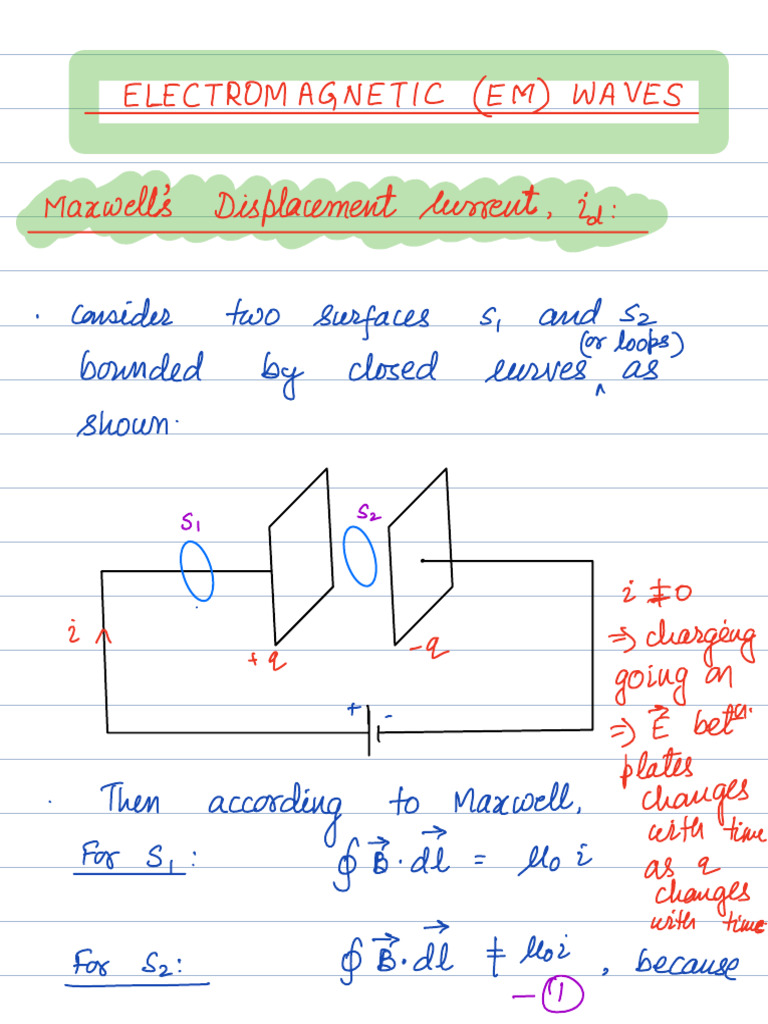 ELECTROMAGNETIC (EM) WAVES
Maxwell's Displacement current, i_d:
· Consider two surfaces S₁ and S₂
bounded by closed curves ^ (or loops) as
shown.
S₁
S₂
i
+q
-q
+ -
i ≠ 0
⇒ charging
going on
⇒ E⃗ betⁿ.
plates
changes
with time
as q
changes
with time
· Then according to Maxwell,
For S₁: ∮ B⃗·dl⃗ = μ₀ i
For S₂: ∮ B⃗·dl⃗ ≠ μ₀i, because
— ①